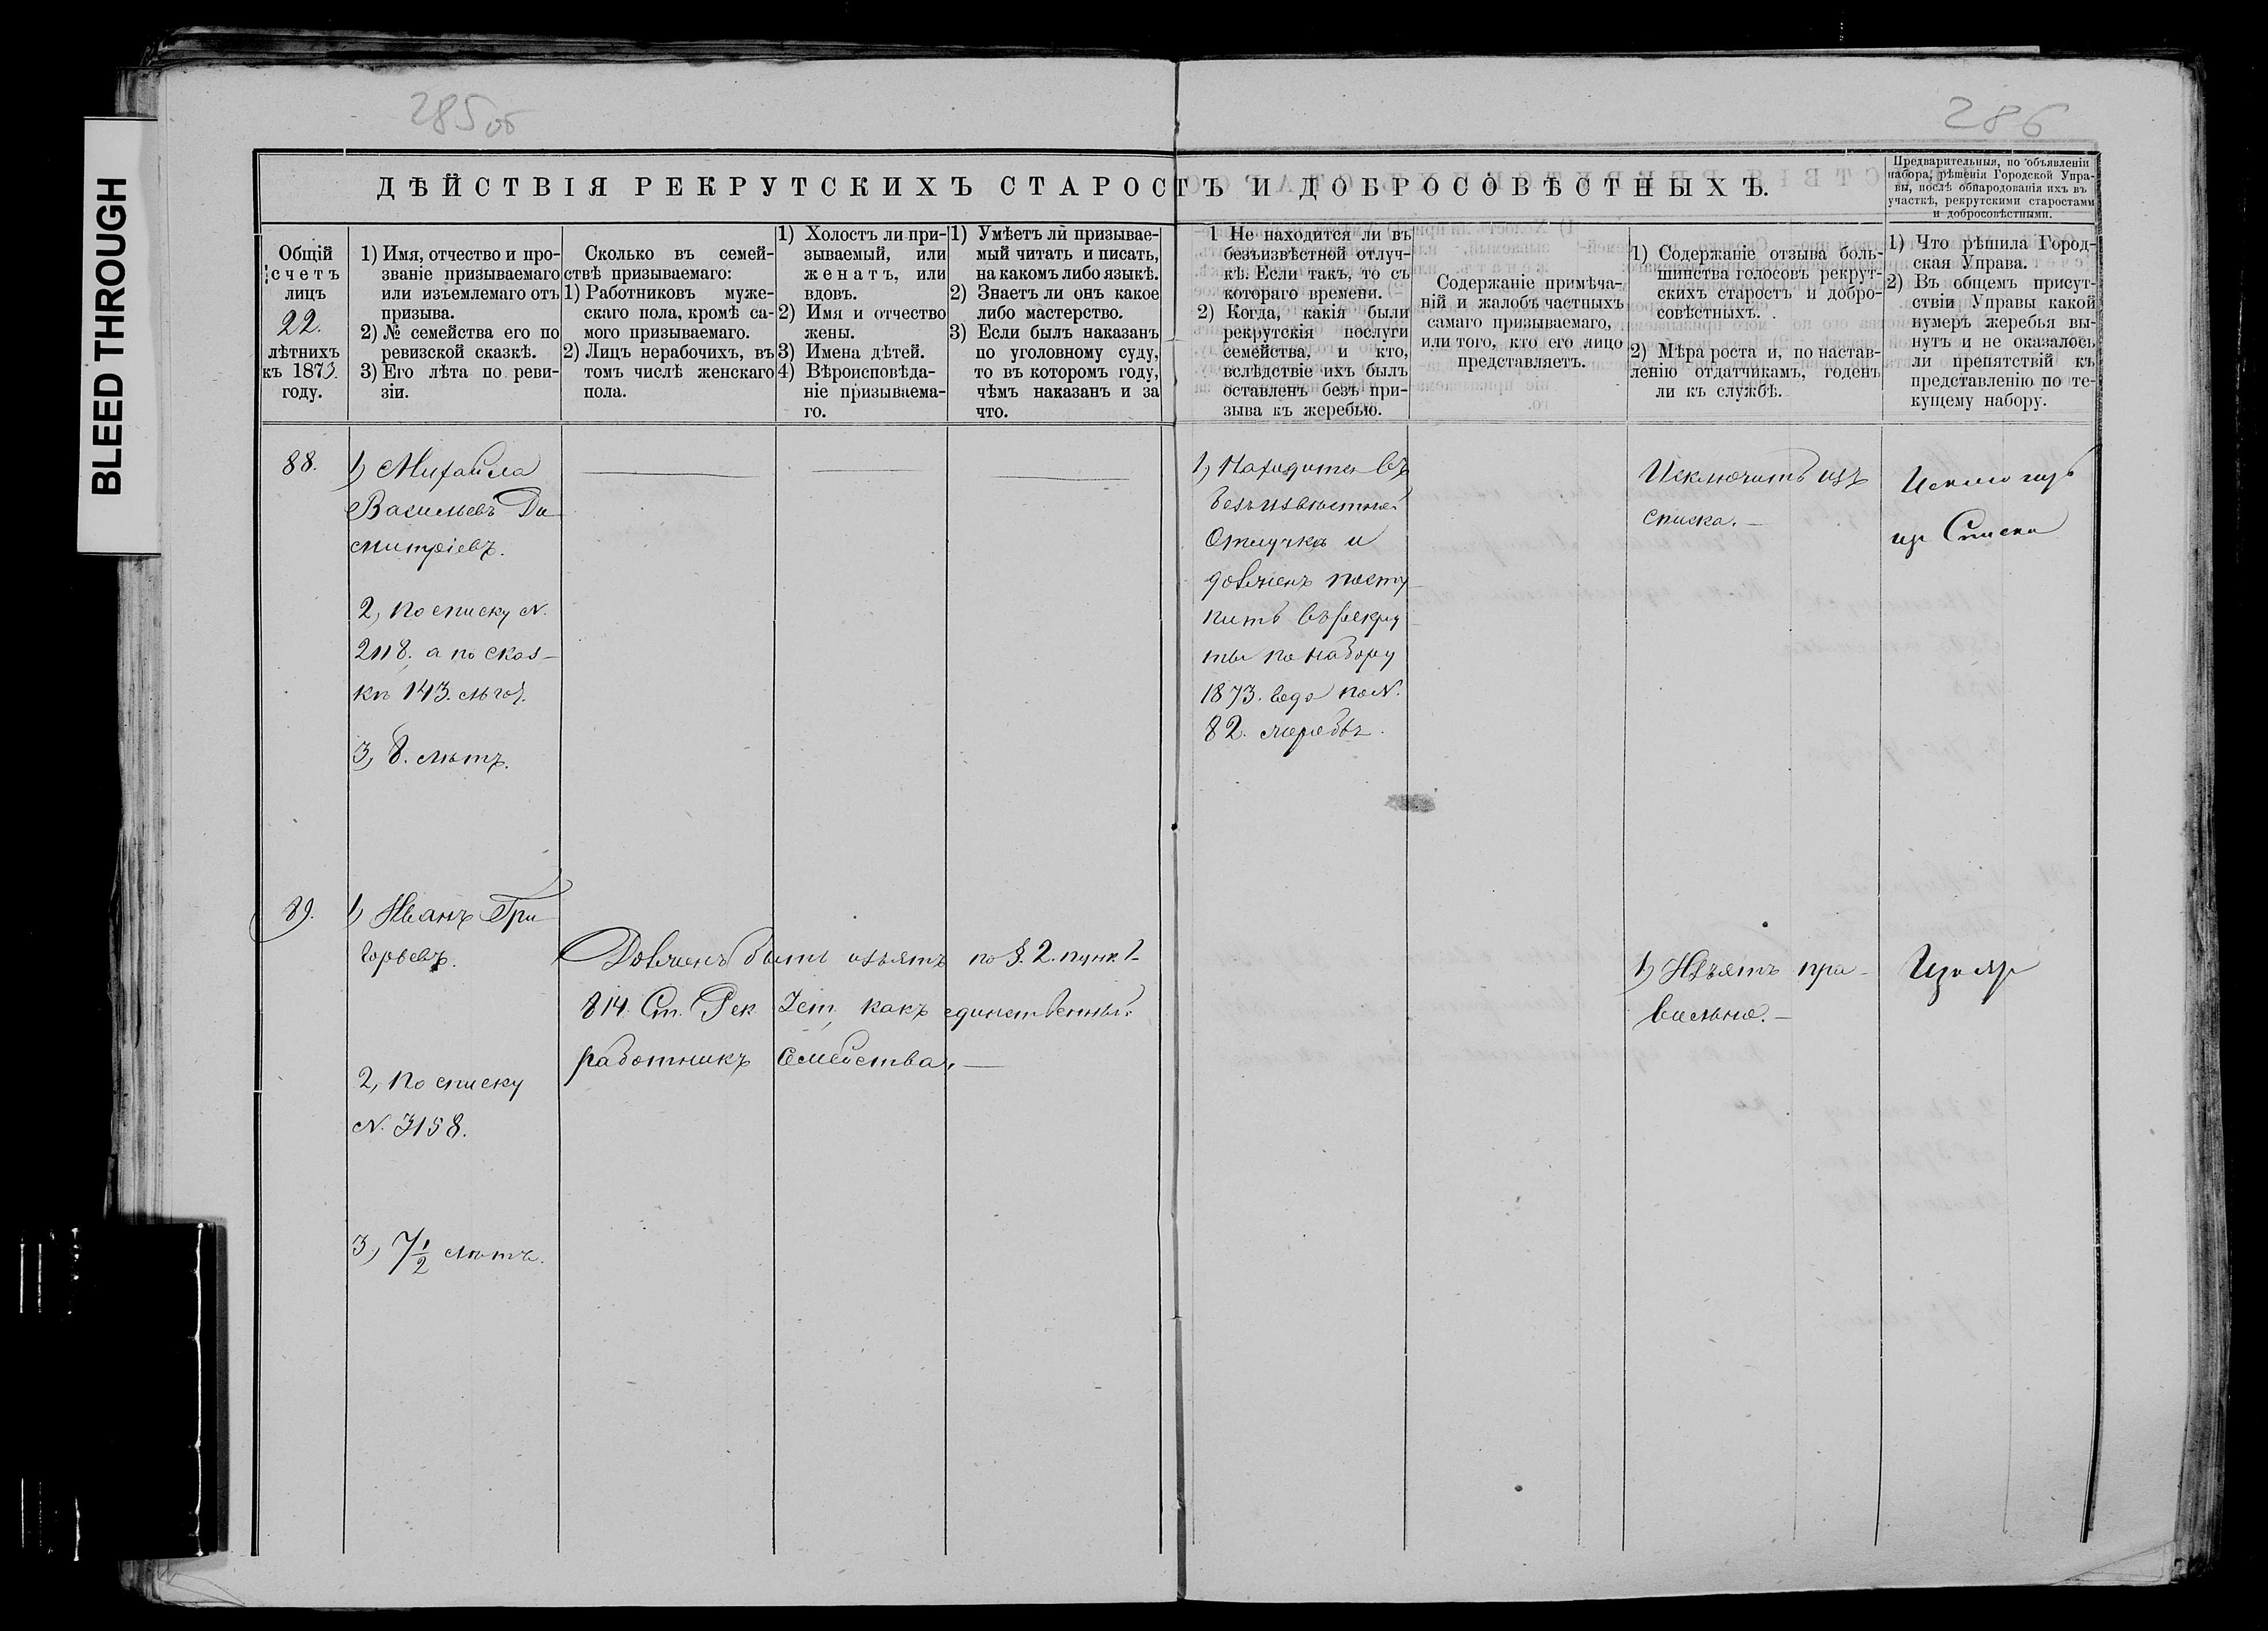 285об
286
BLEED THROUGH
ДѢЙСТВІЯ РЕКРУТСКИХЪ СТАРОСТЪ И ДОБРОСОВѢСТНЫХЪ.
Предварительныя, по объявленіи
набора, рѣшенія Городской Упра-
вы, послѣ обнародованія ихъ въ
участкѣ, рекрутскими старостами
и добросовѣстными.
Общій
счетъ
лицъ
22.
лѣтнихъ
къ 1873.
году.
1) Имя, отчество и про-
званіе призываемаго
или изъемлемаго отъ
призыва.
2) № семейства его по
ревизской сказкѣ.
3) Его лѣта по реви-
зіи.
Сколько въ семей-
ствѣ призываемаго:
1) Работниковъ муже-
скаго пола, кромѣ са-
мого призываемаго.
2) Лицъ нерабочихъ, въ
томъ числѣ женскаго
пола.
1) Холостъ ли при-
зываемый, или
женатъ, или
вдовъ.
2) Имя и отчество
жены.
3) Имена дѣтей.
4) Вѣроисповѣда-
ніе призываема-
го.
1) Умѣетъ ли призывае-
мый читать и писать,
на какомъ либо языкѣ.
2) Знаетъ ли онъ какое
либо мастерство.
3) Если былъ наказанъ
по уголовному суду,
то въ которомъ году,
чѣмъ наказанъ и за
что.
1 Не находится ли въ
безъизвѣстной отлуч-
кѣ. Если такъ, то съ
котораго времени.
2) Когда, какія были
рекрутскія послуги
семейства, и кто,
вслѣдствіе ихъ былъ
оставленъ безъ при-
зыва къ жеребью.
Содержаніе примѣча-
ній и жалобъ частныхъ
самаго призываемаго,
или того, кто его лицо
представляетъ.
1) Содержаніе отзыва боль-
шинства голосовъ рекрут-
скихъ старостъ и добро-
совѣстныхъ.
2) Мѣра роста и, по настав-
ленію отдатчикамъ, годенъ
ли къ службѣ.
1) Что рѣшила Город-
ская Управа.
2) Въ общемъ присут-
ствіи Управы какой
нумеръ жеребья вы-
нутъ и не оказалось
ли препятствій къ
представленію по те-
кущему набору.
88.
1) Михайла
Васильевъ Ди
митріевъ.
2, по списку N.
2118. а по сказ-
кѣ 143.
3, 8. лѣтъ.
1, Находится въ
безъизвѣстной
Отлучкѣ и
долженъ посту
пить въ рекру
ты по набору
1873. года по N.
82. жеребья.
Исключить изъ
списка.—
из Списка
89.
1, Иванъ Гри
горьевъ.
2, по списку
N. 3158.
3, 7½ лѣтъ.
Долженъ быть изъятъ по §. 2. пунк. 1
814. Ст. Рек Уст, какъ единственный
работникъ Семейства.—
1, Изъятъ пра-
вильно.—
Изъят